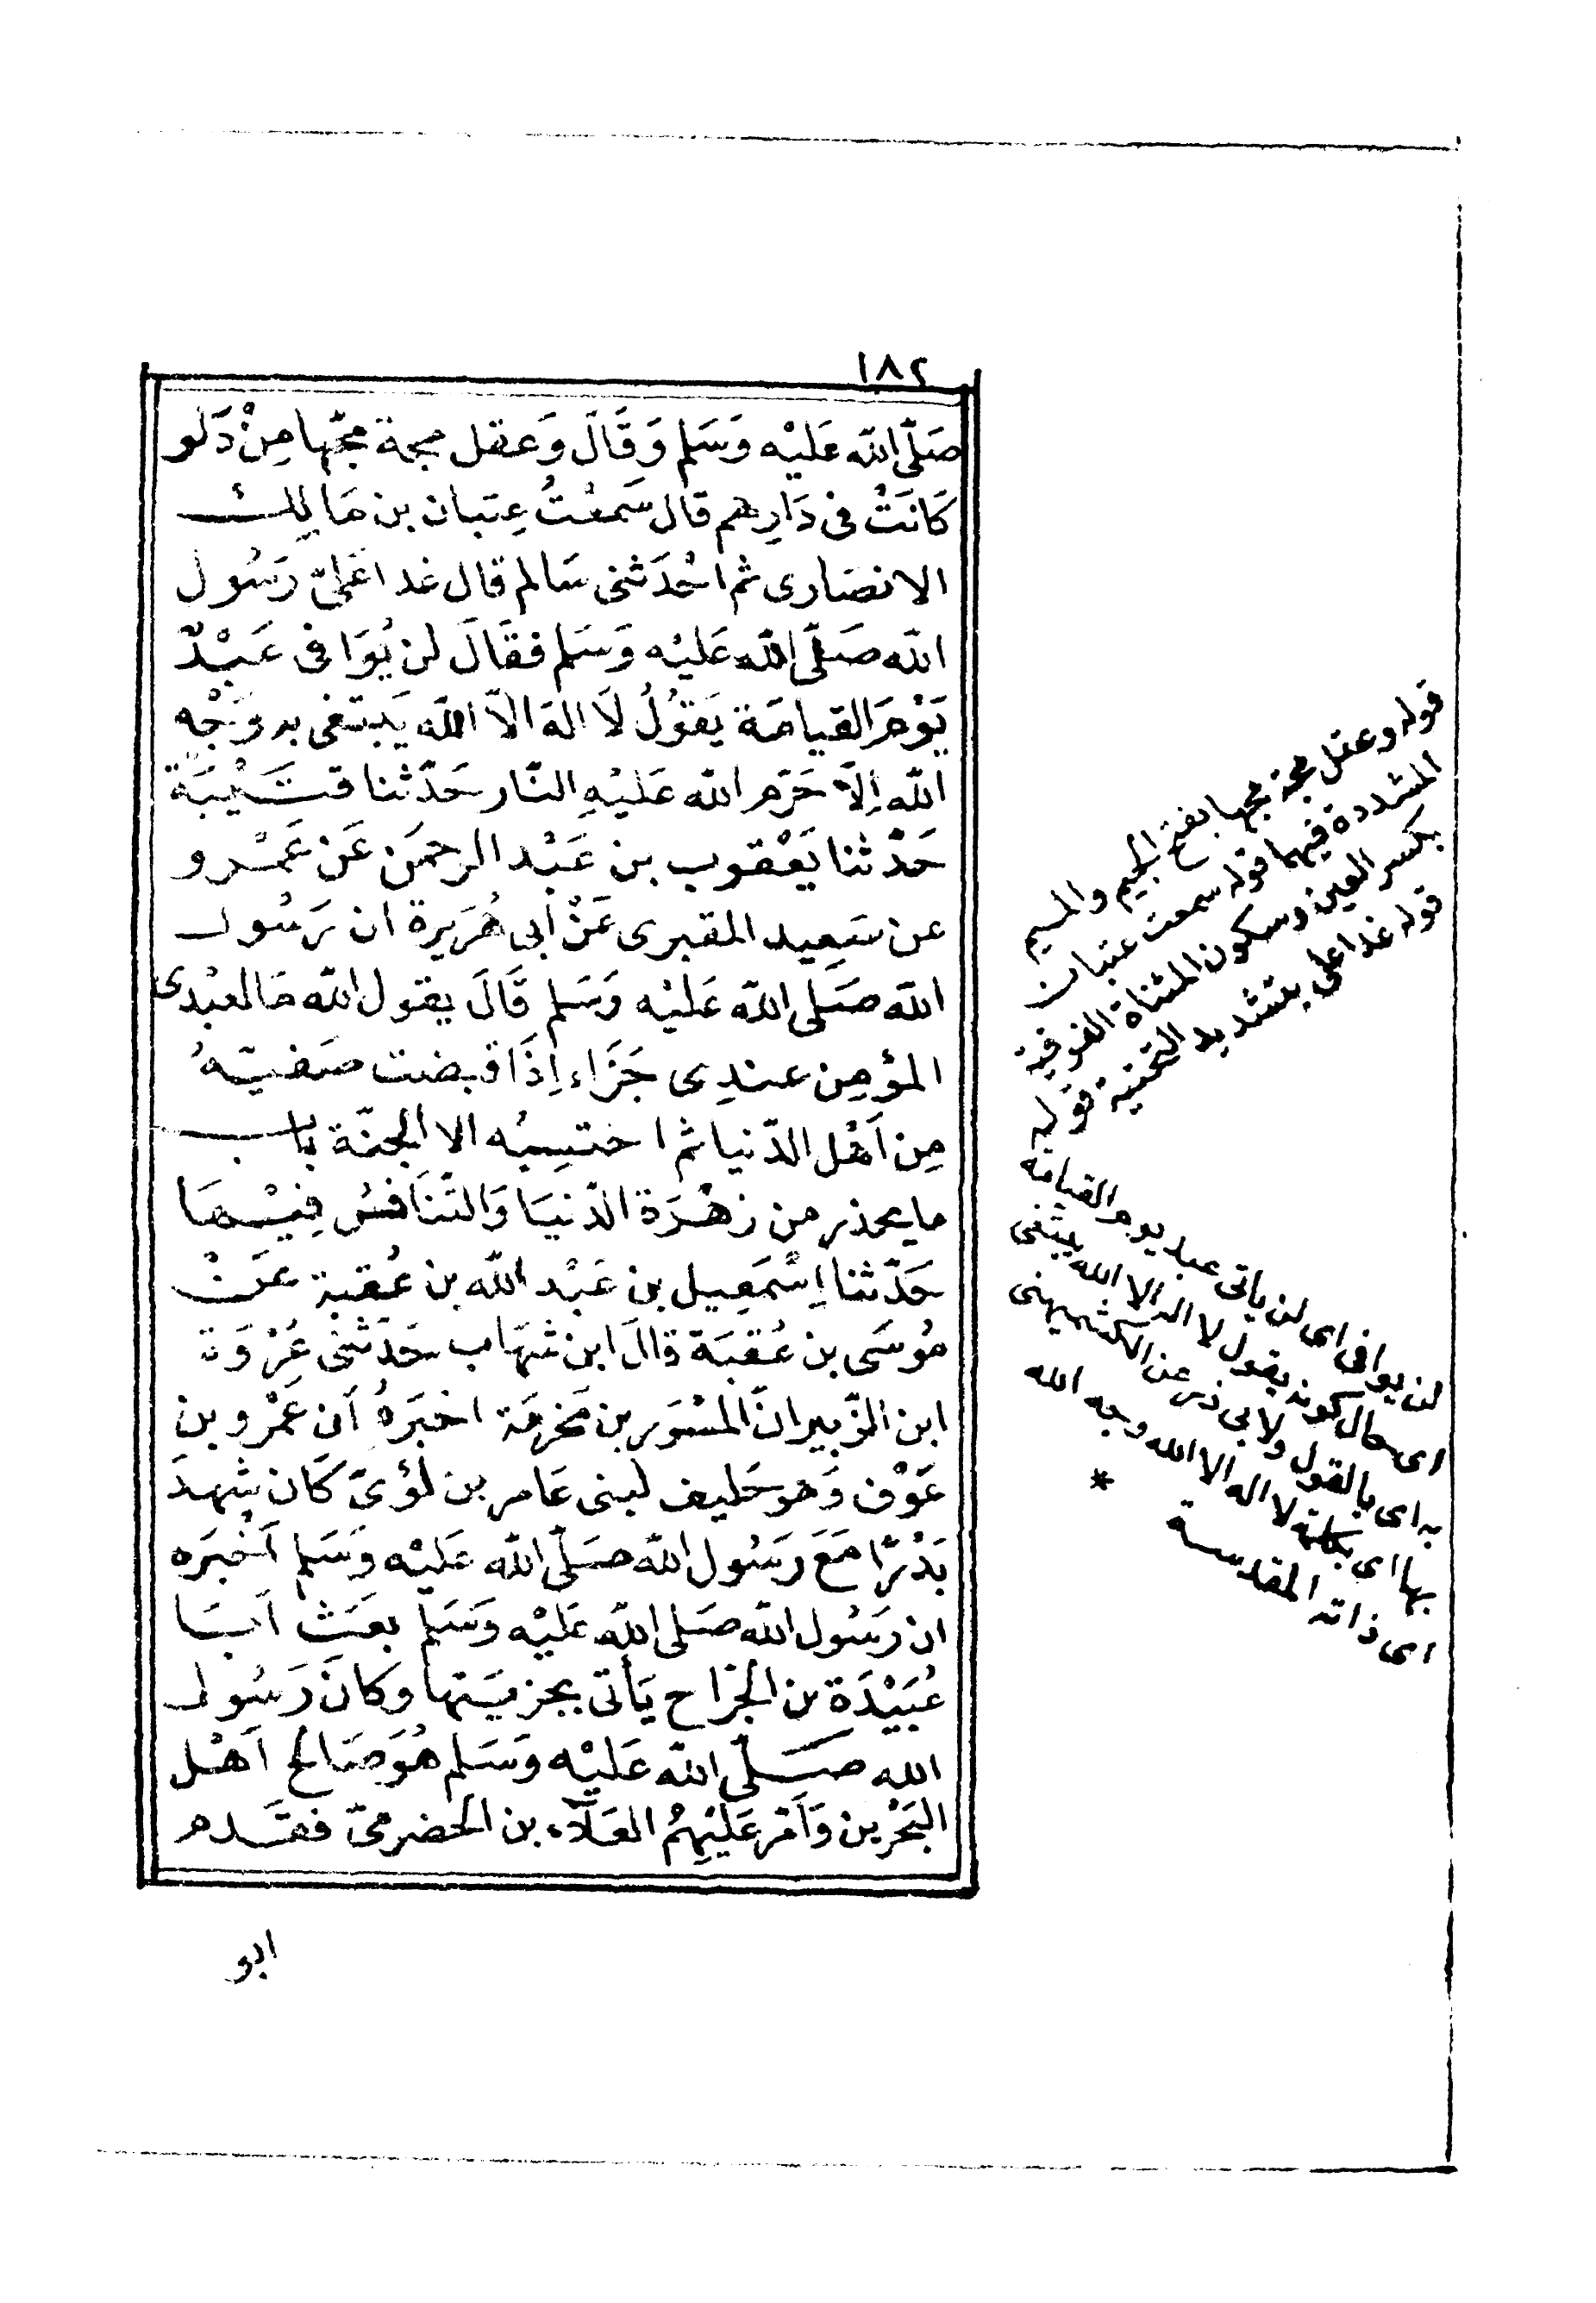 ١٨٢
صَلّى الله عَليْه وَسَلم وَقَالَ وَعقل مجة مجّها مِنْ دَلو
كَانَتْ فى دَارِهم قال سَمعْتُ عِتبان بن مَالِك
الانصَارى ثم احْدَ بنى سَالم قال غدا عَلىّ رَسُول
الله صَلّى الله عَليْه وَسَلم فقَالَ لن يُوَافى عَبْدٌ
يَوْمَ القيامَة يَقوُلُ لَا الهَ الّا الله يَبتغى به وَجْه
الله اِلَّا حَرّم الله عَليْهِ النّار حَدّثنا قتَيْبَة
حَدّثنا يَعْقوب بن عَبْد الرحمَن عَن عَمْرو
عن سَعِيد المقبرى عَنْ أبى هُرَيرة ان رَسُول
الله صَلى الله عَليْه وَسَلم قَالَ يقول الله مَا لعَبْدى
المؤمِن عندِى جَزَاء اِذَا قبضت صَفيّهُ
مِن اَهْل الدّنيا ثم احتسِبُه الا الجنّة باب
ما يحذر من زهْرَة الدّنيَا وَالتّنَافسُ فِيْهَا
حَدّثنا اِسْمَعِيل بن عَبْد الله بن عُقبة عَنْ
مُوسَى بن عُقبَة قالَ ابن شهَاب حَدّثنى عُرْوَة
ابن الزّبير انّ المسْوَر بن مَخرمَة اخبَرهُ اَن عَمْرو بنِ
عَوْف وَهو حَليف لبنى عَامر بن لؤىّ كَان شهدَ
بَدْرًا مَعَ رَسُول الله صَلّى الله عَليْه وَسَلم اَخْبَره
ان رَسُول الله صَلى الله عَليْه وَسَلم بعَث اَبَا
عُبَيْدَة بن الجَرّاح يَأتى بجزيَتها وَكانَ رَسُول
الله صَلّى الله عَليْه وَسَلم هُوَ صَالح اَهْل
البَحْرين وَاَمّر عَليْهِمُ العَلَاَء بن الحضرمىّ فقَدم
ابو
قوله وعقل مجة مجها بفتح الجيم والميم
المشددة فيهما قوله سمعت عتبان
بكسر العين وسكون المثناة الفوقية
قوله غدا على بتشديد التحتية قوله
لن يوافى اى لن ياتى عبد يوم القيامة
اى حال كونه يقول لا اله الا الله يبتغى
به اى بالقول ولابى ذر عن الكشميهنى
بها اى بكلمة لا اله الا الله وجه الله
اى ذاته المقدسة *